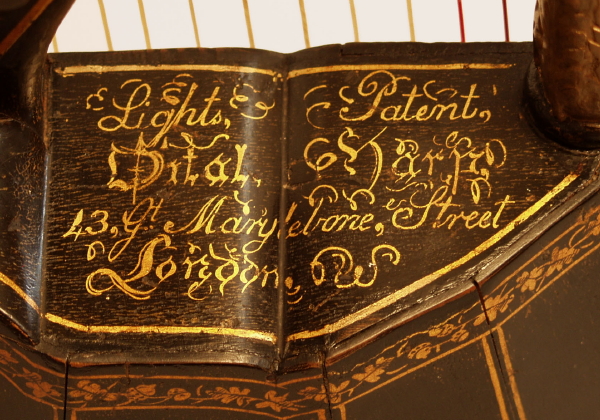 Lights, Patent,
Dital, Harp,
43, Gt. Marylebone, Street
London, W